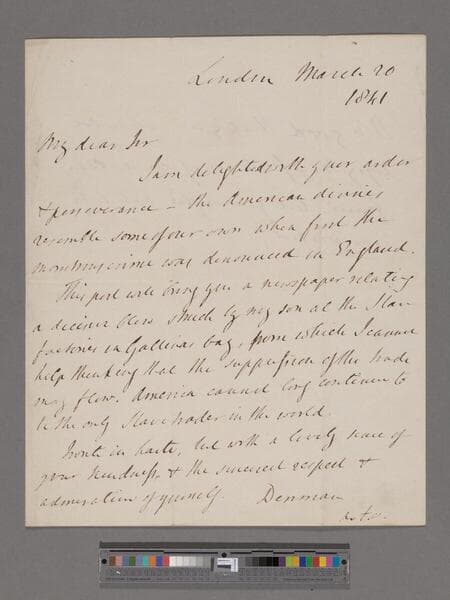 London March 20
1841
My dear Sir
I am delighted with your ardor
& perseverance - the American divines
resemble some of our own when first the
monstrous crime was denounced in England.
This post will bring you a newspaper relating
a decisive blow struck by my son at the Slave
factories in Gallinas bay, from which I cannot
help thinking that the suppression of the trade
may flow. America cannot long continue to
be the only Slave trader in the world.
I write in haste, but with a lively sense of
your kindness, & the sincerest respect &
admiration of yourself Denman